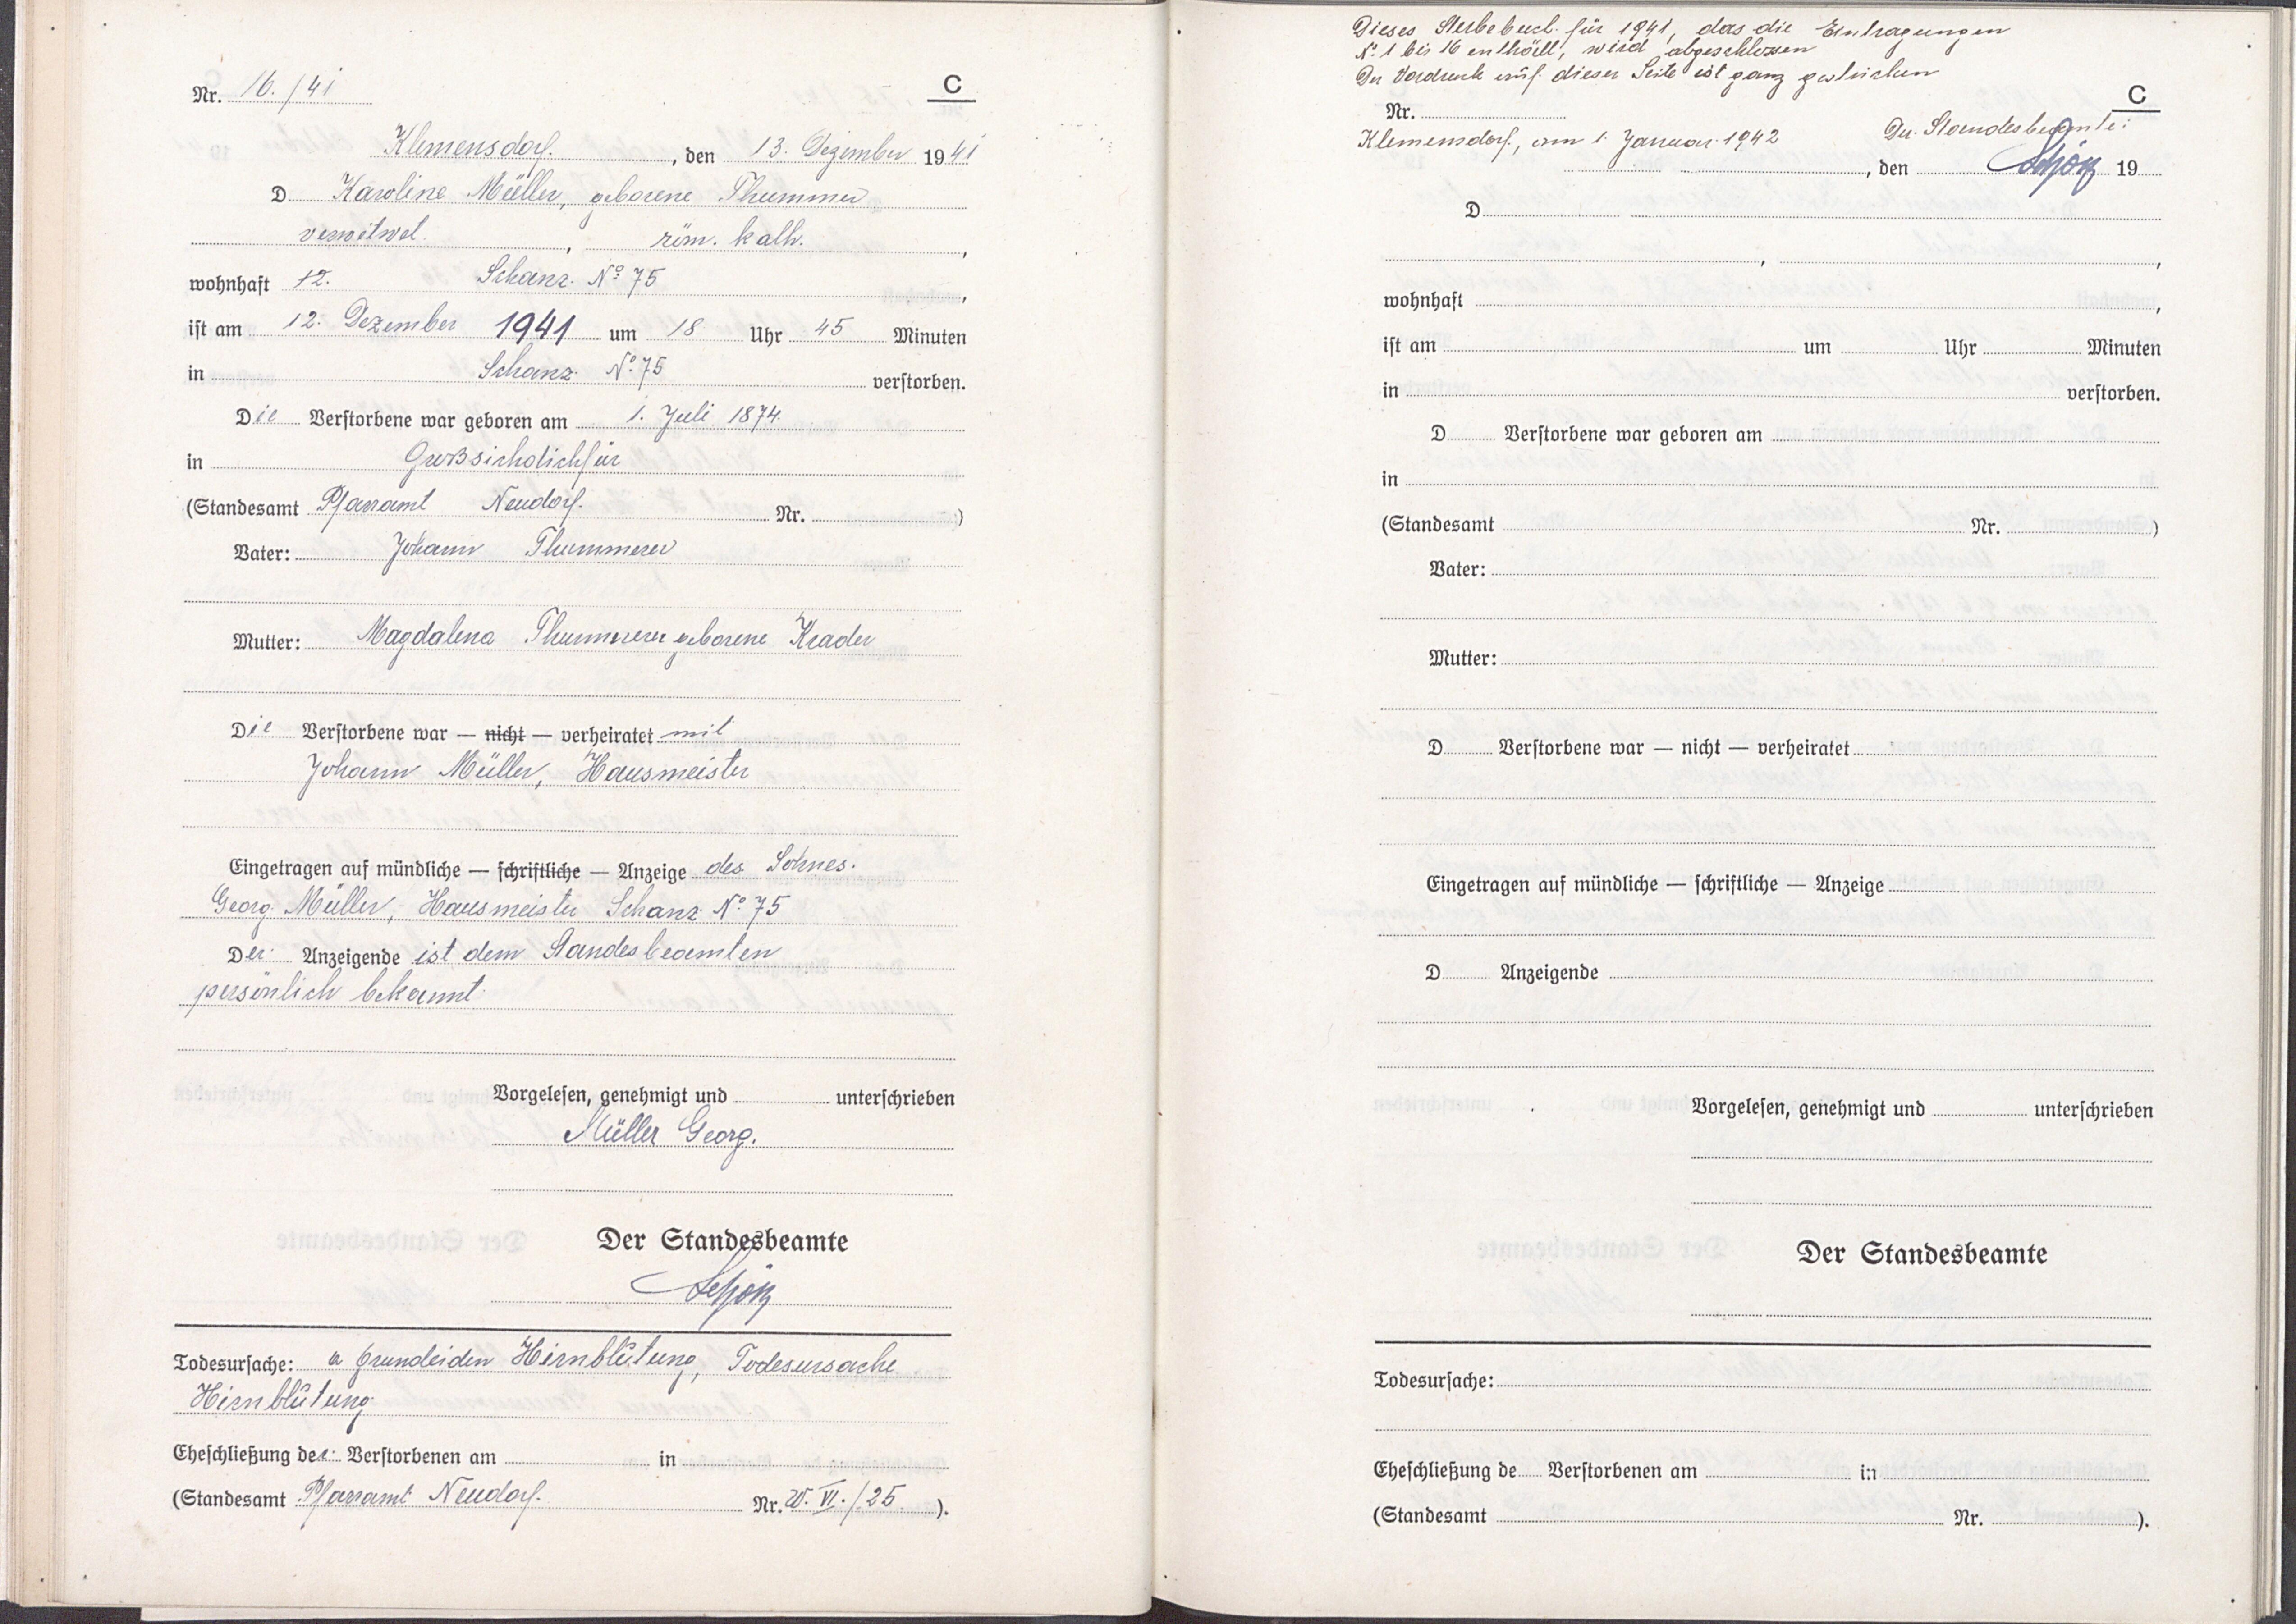 Nr. 16./41
C
Klemensdorf, den 13. Dezember 1941
D Karoline Müller, geborene Thummer
verwitwet, röm. kath.,
wohnhaft 12. Schanz No 75,
ist am 12. Dezember 1941 um 18 Uhr 45 Minuten
in Schanz No 75 verstorben.
Die Verstorbene war geboren am 1. Juli 1874
in Großsichdichfür
(Standesamt Pfarramt Neudorf. Nr. )
Vater: Johann Thummerer
Mutter: Magdalena Thummerer geborene Krader
Die Verstorbene war — nicht — verheiratet mit
Johann Müller, Hausmeister
Eingetragen auf mündliche — schriftliche — Anzeige des Sohnes.
Georg Müller, Hausmeister Schanz No 75
Der Anzeigende ist dem Standesbeamten
persönlich bekannt
Vorgelesen, genehmigt und unterschrieben
Müller Georg.
Der Standesbeamte
Schön
Todesursache: a Grundleiden Hirnblutung, Todesursache
Hirnblutung
Eheschließung der Verstorbenen am in
(Standesamt Pfarramt Neudorf. Nr. W. VI./25 ).
Dieses Sterbebuch für 1941, das die Eintragungen
No 1 bis 16 enthält, wird abgeschlossen
Der Vordruck auf dieser Seite ist ganz gestrichen
C
Nr.
Klemensdorf, am 1. Januar 1942 Der Standesbeamte:
, den Schön 19
D
,
wohnhaft ,
ist am um Uhr Minuten
in verstorben.
D Verstorbene war geboren am
in
(Standesamt Nr. )
Vater:
Mutter:
D Verstorbene war — nicht — verheiratet
Eingetragen auf mündliche — schriftliche — Anzeige
D Anzeigende
Vorgelesen, genehmigt und unterschrieben
Der Standesbeamte
Todesursache:
Eheschließung de Verstorbenen am in
(Standesamt Nr. ).